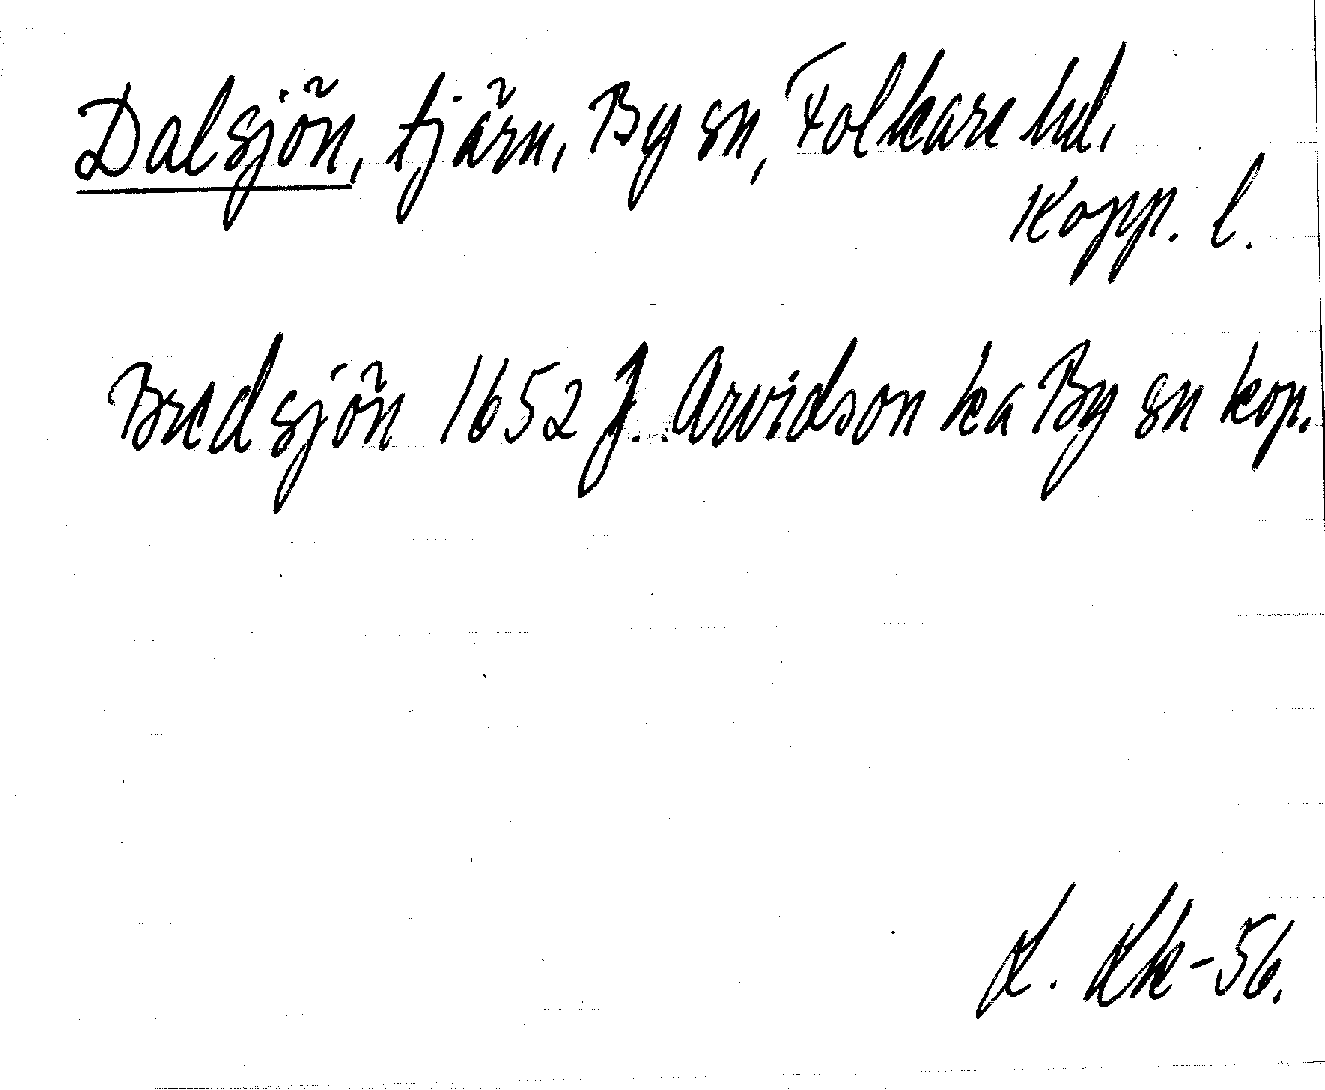 Dalsjön, tjärn, By sn, Folkare hd,
Kopp. l.
Bredsjön 1652 J. Arvidson ka By sn kop.
56.